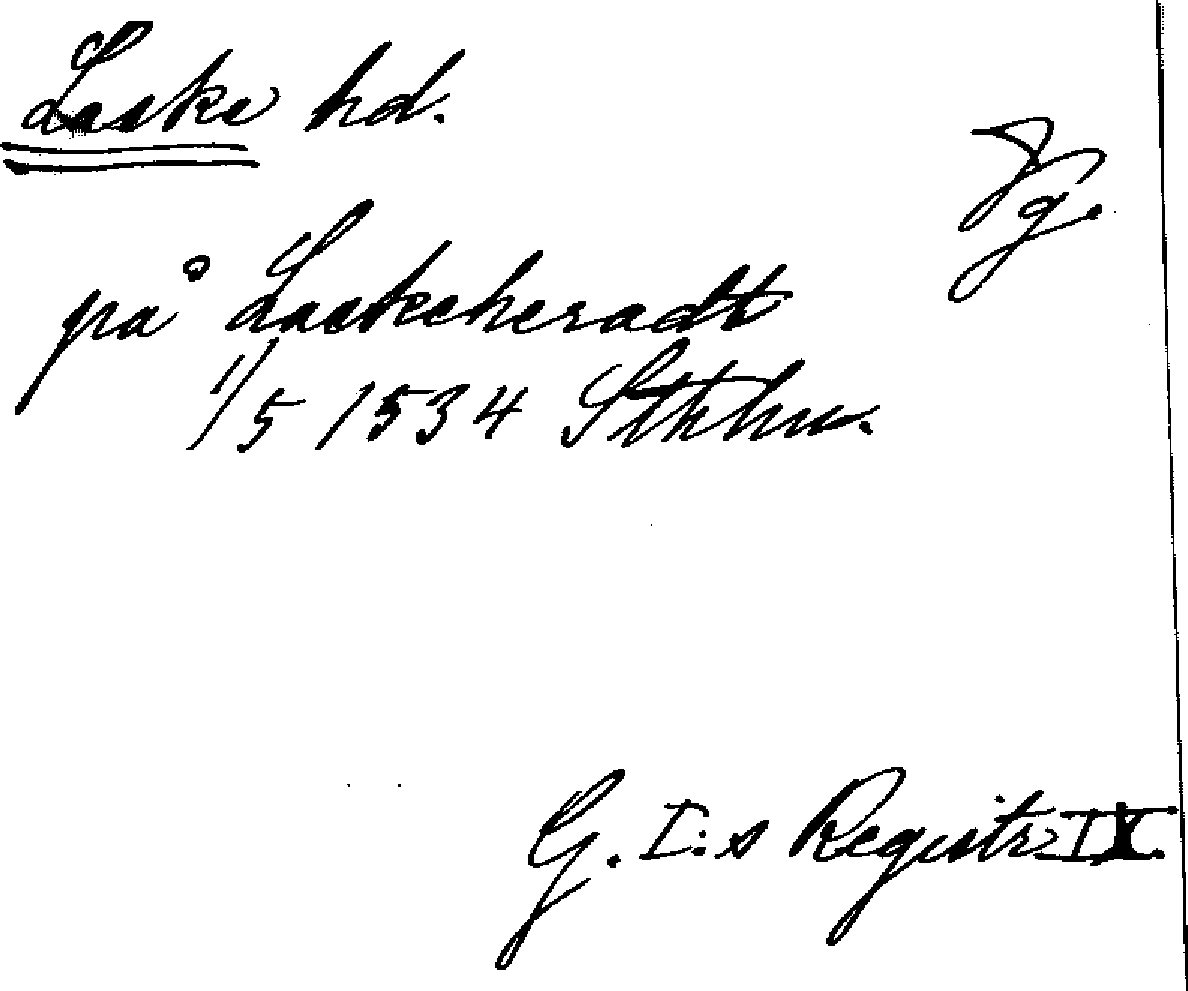 Laske hd.
Vg.
på Laskeheradt
1/5 1534 Sthlm.
G. I:s Registr IX.